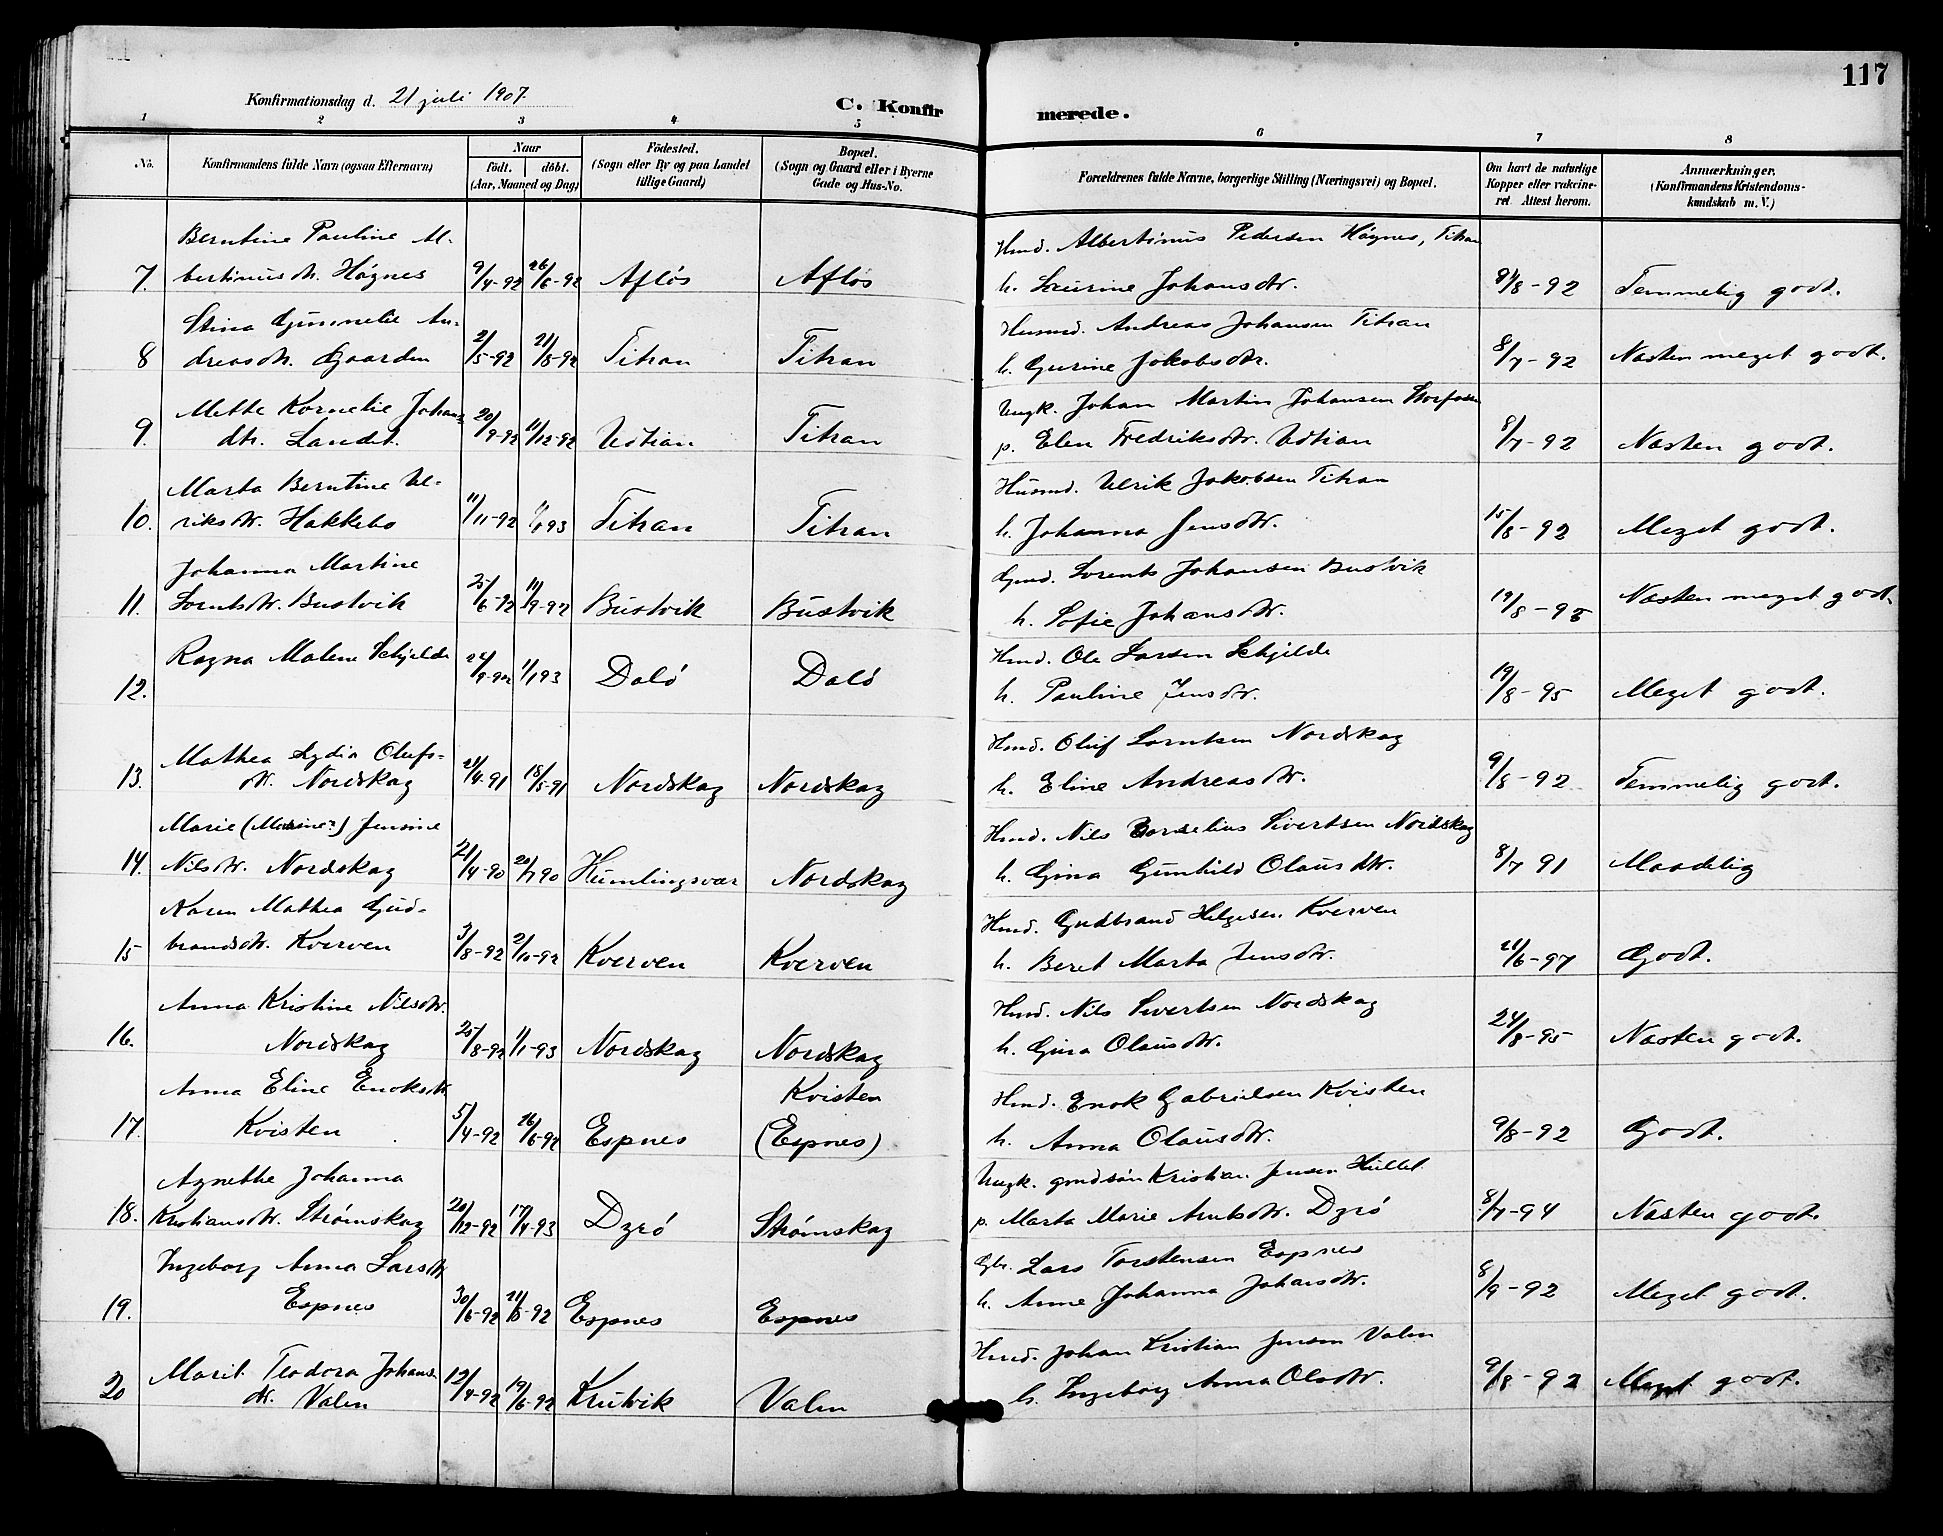 117
Konfirmationsdag d. 21 juli 1907.
C. Konfir merede.
1 2 3 4 5 6 7 8
No.
Konfirmandens fulde Navn (ogsaa Efternavn)
Naar
födt. döbt.
(Aar, Maaned og Dag)
Födested.
(Sogn eller By og paa Landet
tillige Gaard)
Bopæl.
(Sogn og Gaard eller i Byerne
Gade og Hus-No.
Forældrenes fulde Navne, borgerlige Stilling (Næringsvei) og Bopæl.
Om havt de naturlige
Kopper eller vaccine-
ret. Attest herom.
Anmærkninger.
(Konfirmandens Kristendoms-
kundskab m. V.)
Berntine Pauline Al-
Hmd. Albertinus Pedersen Högnes, Titran
7. bertinusdtr. Högnes 9/4-92 26/6-92 Aflös Aflös h. Laurine Johansdtr. /8-92 Temmelig godt.
Stina Gunnelie An-
Husmd. Andreas Johansen Titran
8 dreasdtr. Gaarden 2/5-92 21/8-92 Titran Titran h. Gurine Jakobsdtr. 8/7-92 Næsten meget godt.
Mette Kornelie Johans
Ungk. Johan Martin Johansen Storfosen
9. dtr. Landet. 20/9-92 11/12-92 Udtian Titran p. Elen Fredriksdtr. Udtian 8/7-92 Næsten godt.
Marta Berntine Ul-
Husmd. Ulrik Jakobsen Titran
10. riksdtr. Hakkebo 11/11-92 1/1 93 Titran Titran h. Johanna Jensdtr. 15/8-92 Meget godt.
Johanna Martine
Gmd. Lorents Johansen Bustvik
11. Lorntsdtr. Bustvik 25/6-92 11/9-92 Bustvik Bustvik h. Sofie Johansdtr. 19/8-95 Næsten meget godt.
Ragna Malene Schjelde
Hmd. Ole Larsen Schjelde
12. 24/9-92 1/1 93 Dalö Dalö h. Pauline Jensdtr. 19/8-95 Meget godt.
Mathea Lydia Olufs-
Hmd. Oluf Lorntsen Nordskag
13. dtr. Nordskag 21/4-91 18/5-91 Nordskag Nordskag h. Eline Andreasdtr. 9/8-92 Temmelig godt.
Marie () Jensine
Hmd. Nils Bornelius Sivertsen Nordskag
14. Nilsdtr. Nordskag 21/4-90 20/7 90 Humlingsvær Nordskag h. Gina Gunhild Olausdtr. 8/7 91 Maadelig
Karen Mathea Gud-
Hmd. Gudbrand Helgesen Kverven
15 brandsdtr. Kverven 3/8-92 2/10-92 Kverven Kverven h. Beret Marta Jensdtr. 21/6-97 Godt.
Anna Kristine Nilsdtr.
Hmd. Nils Sivertsen Nordskag
16. Nordskag 25/8-92 1/1-93 Nordskag Nordskag h. Gina Olausdtr. 24/8-95 Næsten godt.
Anna Eline Enoksdtr
Kvisten
Hmd. Enok Gabrielsen Kvisten
17. Kvisten 5/4-92 26/6-92 Espnes (Espnes) h. Anna Olausdtr. 9/8-92 Godt.
Agnethe Johanna
Ungk. gmdsön Kristian Jensen Hullet
18. Kristiansdtr. Strömskag 20/12-92 17/4-93 Dyrö Strömskag p. Marta Marie Arntsdtr. Dyrö 8/7-94 Næsten godt.
Ingeborg Anna Larsdtr
Gbr. Lars Torstensen Espnes
19. Espnes 30/6-92 21/8-92 Espnes Espnes h. Anne Johanna Johansdtr. 8/9-92 Meget godt.
Marit Teodora Johans
Hmd. Johan Kristian Jensen Valen
20 dtr. Valen 12/4-92 19/6-92 Krutvik Valen h. Ingeborg Anna Olsdtr. 9/8-92 Meget godt.